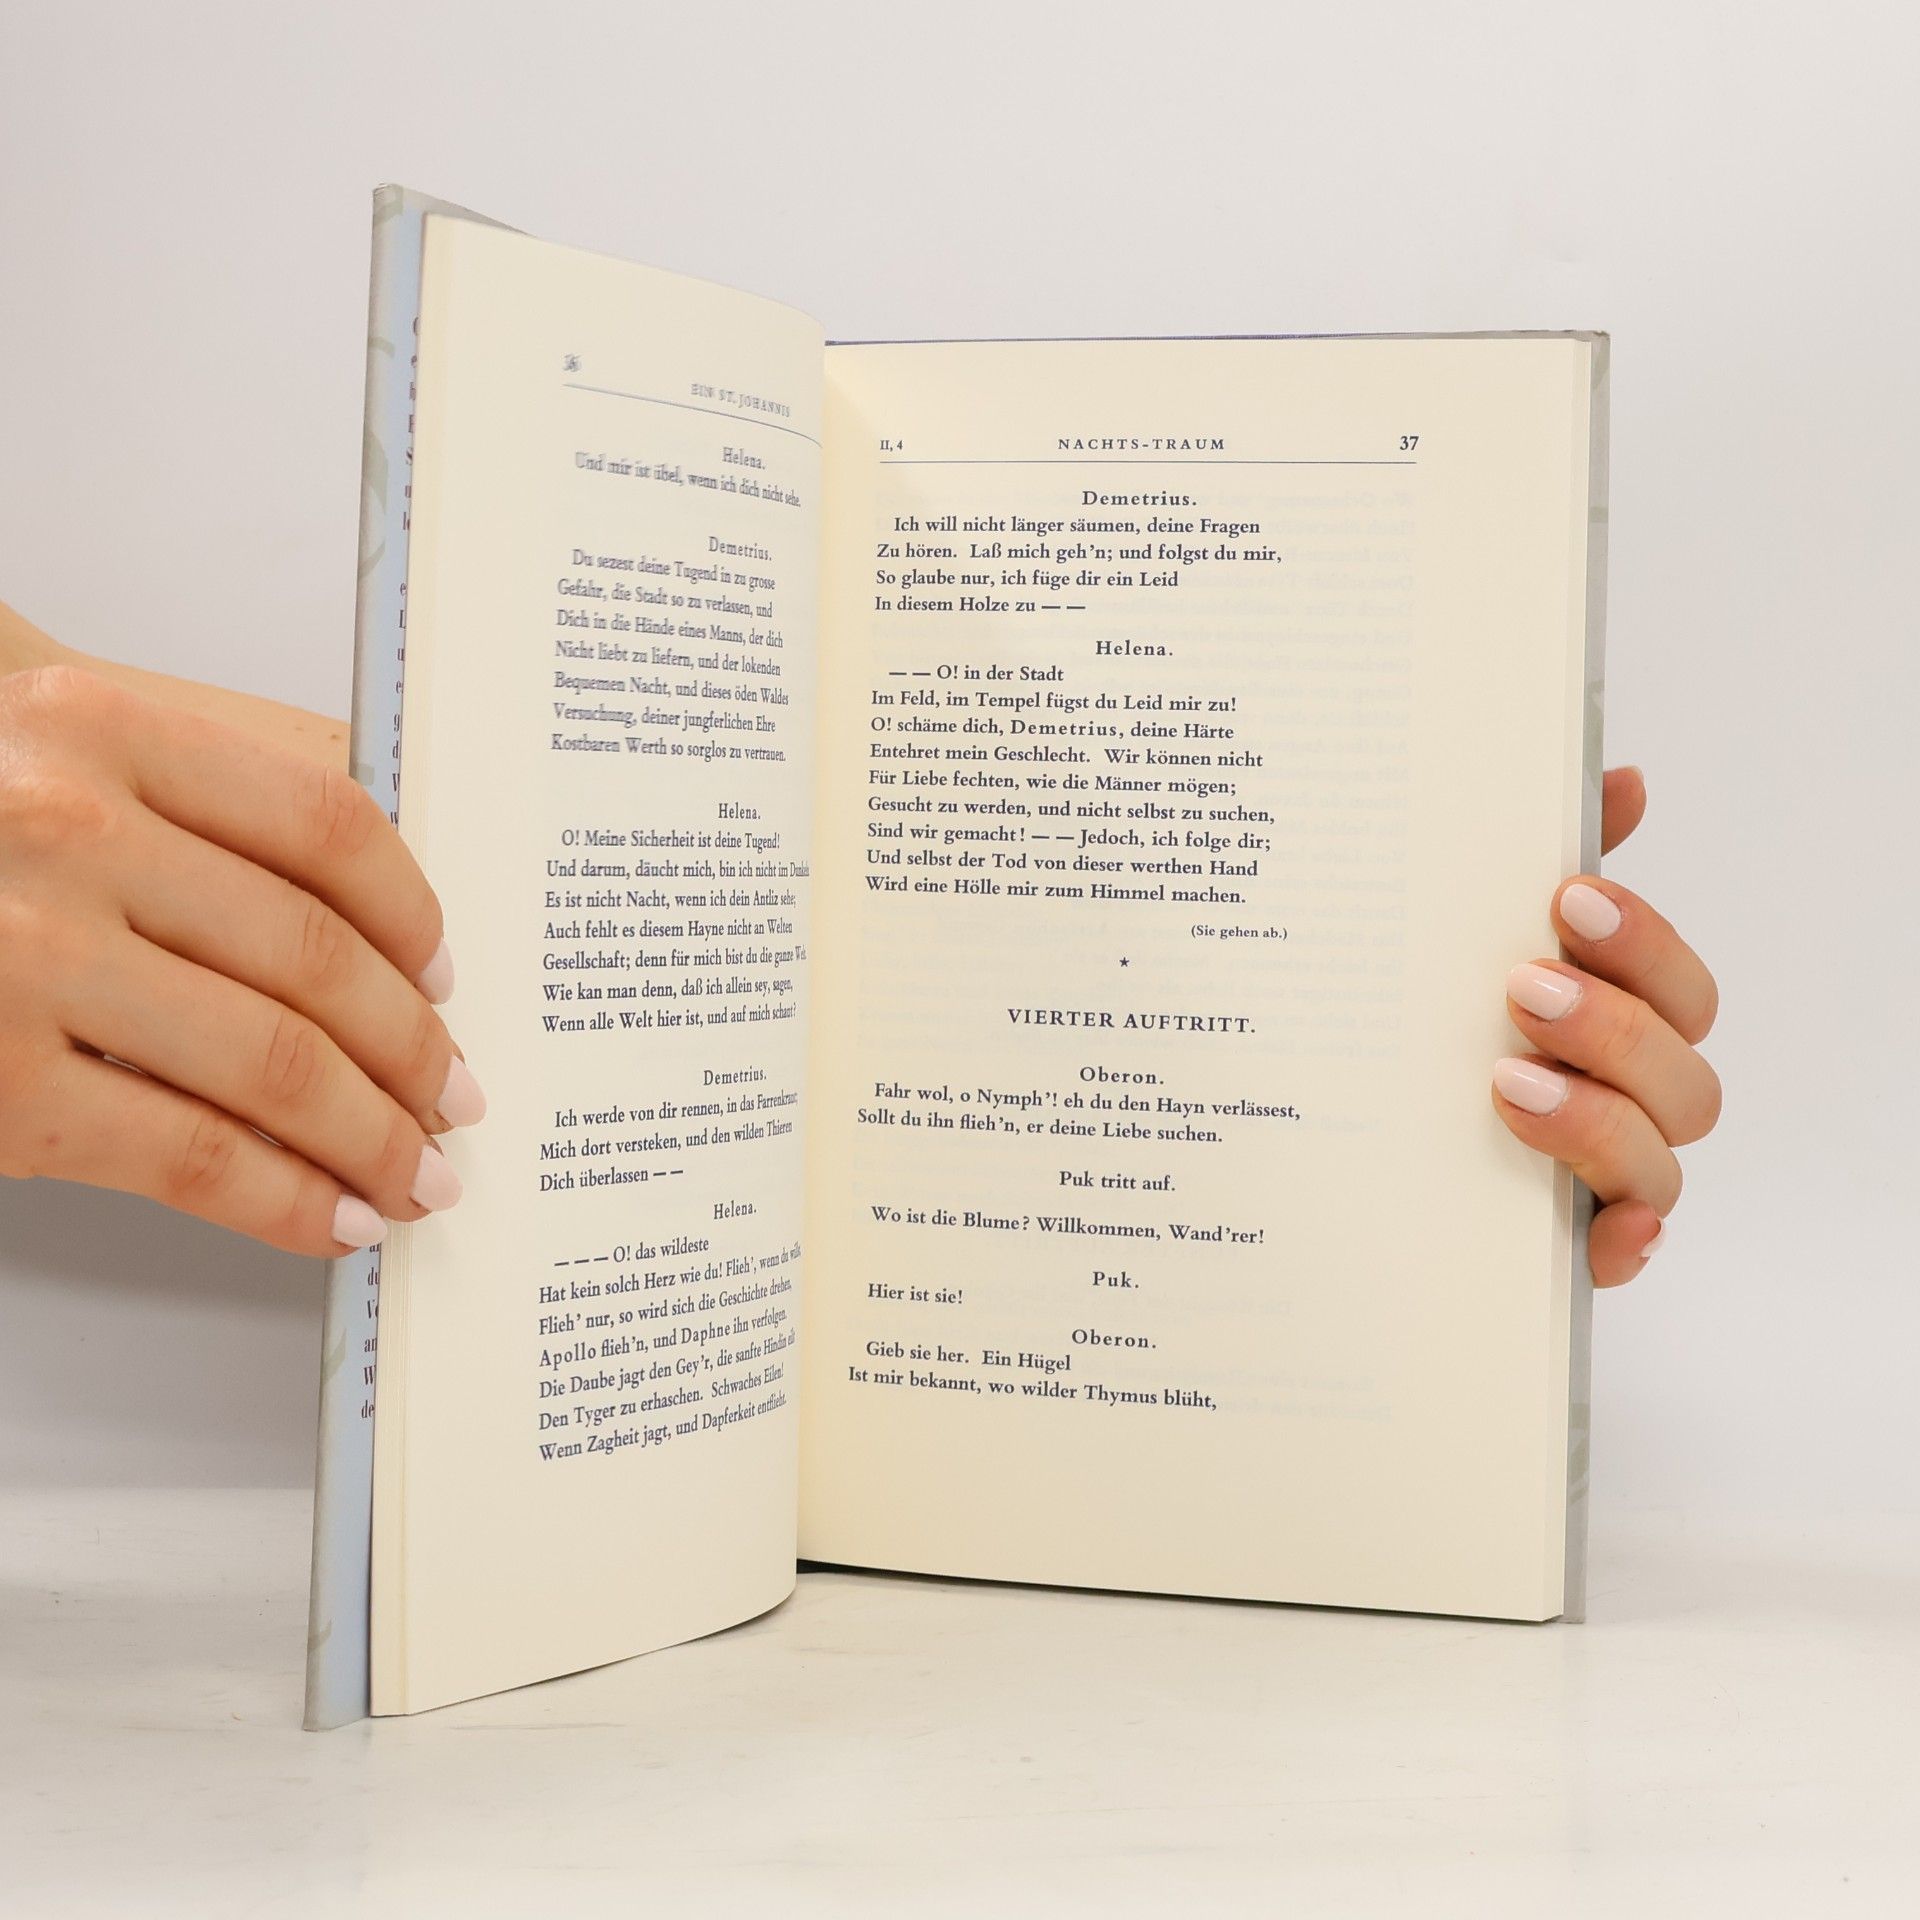 36
EIN ST. JOHANNIS
Helena.
Und mir ist übel, wenn ich dich nicht sehe.
Demetrius.
Du sezest deine Tugend in zu grosse
Gefahr, die Stadt so zu verlassen, und
Dich in die Hände eines Manns, der dich
Nicht liebt zu liefern, und der lokenden
Bequemen Nacht, und dieses öden Waldes
Versuchung, deiner jungferlichen Ehre
Kostbaren Werth so sorglos zu vertrauen.
Helena.
O! Meine Sicherheit ist deine Tugend!
Und darum, däucht mich, bin ich nicht im Dunkeln
Es ist nicht Nacht, wenn ich dein Antliz sehe;
Auch fehlt es diesem Hayne nicht an Welten
Gesellschaft; denn für mich bist du die ganze Welt.
Wie kan man denn, daß ich allein sey, sagen,
Wenn alle Welt hier ist, und auf mich schaut?
Demetrius.
Ich werde von dir rennen, in das Farrenkraut
Mich dort versteken, und den wilden Thieren
Dich überlassen — —
Helena.
— — — O! das wildeste
Hat kein solch Herz wie du! Flieh', wenn du willt,
Flieh' nur, so wird sich die Geschichte drehen,
Apollo flieh'n, und Daphne ihn verfolgen.
Die Daube jagt den Gey'r, die sanfte Hindin eilt
Den Tyger zu erhaschen. Schwaches Eilen!
Wenn Zagheit jagt, und Dapferkeit entflieht.
II, 4
NACHTS-TRAUM
37
Demetrius.
Ich will nicht länger säumen, deine Fragen
Zu hören. Laß mich geh'n; und folgst du mir,
So glaube nur, ich füge dir ein Leid
In diesem Holze zu — —
Helena.
— — O! in der Stadt
Im Feld, im Tempel fügst du Leid mir zu!
O! schäme dich, Demetrius, deine Härte
Entehret mein Geschlecht. Wir können nicht
Für Liebe fechten, wie die Männer mögen;
Gesucht zu werden, und nicht selbst zu suchen,
Sind wir gemacht! — — Jedoch, ich folge dir;
Und selbst der Tod von dieser werthen Hand
Wird eine Hölle mir zum Himmel machen.
(Sie gehen ab.)
★
VIERTER AUFTRITT.
Oberon.
Fahr wol, o Nymph'! eh du den Hayn verlässest,
Sollt du ihn flieh'n, er deine Liebe suchen.
Puk tritt auf.
Wo ist die Blume? Willkommen, Wand'rer!
Puk.
Hier ist sie!
Oberon.
Gieb sie her. Ein Hügel
Ist mir bekannt, wo wilder Thymus blüht,